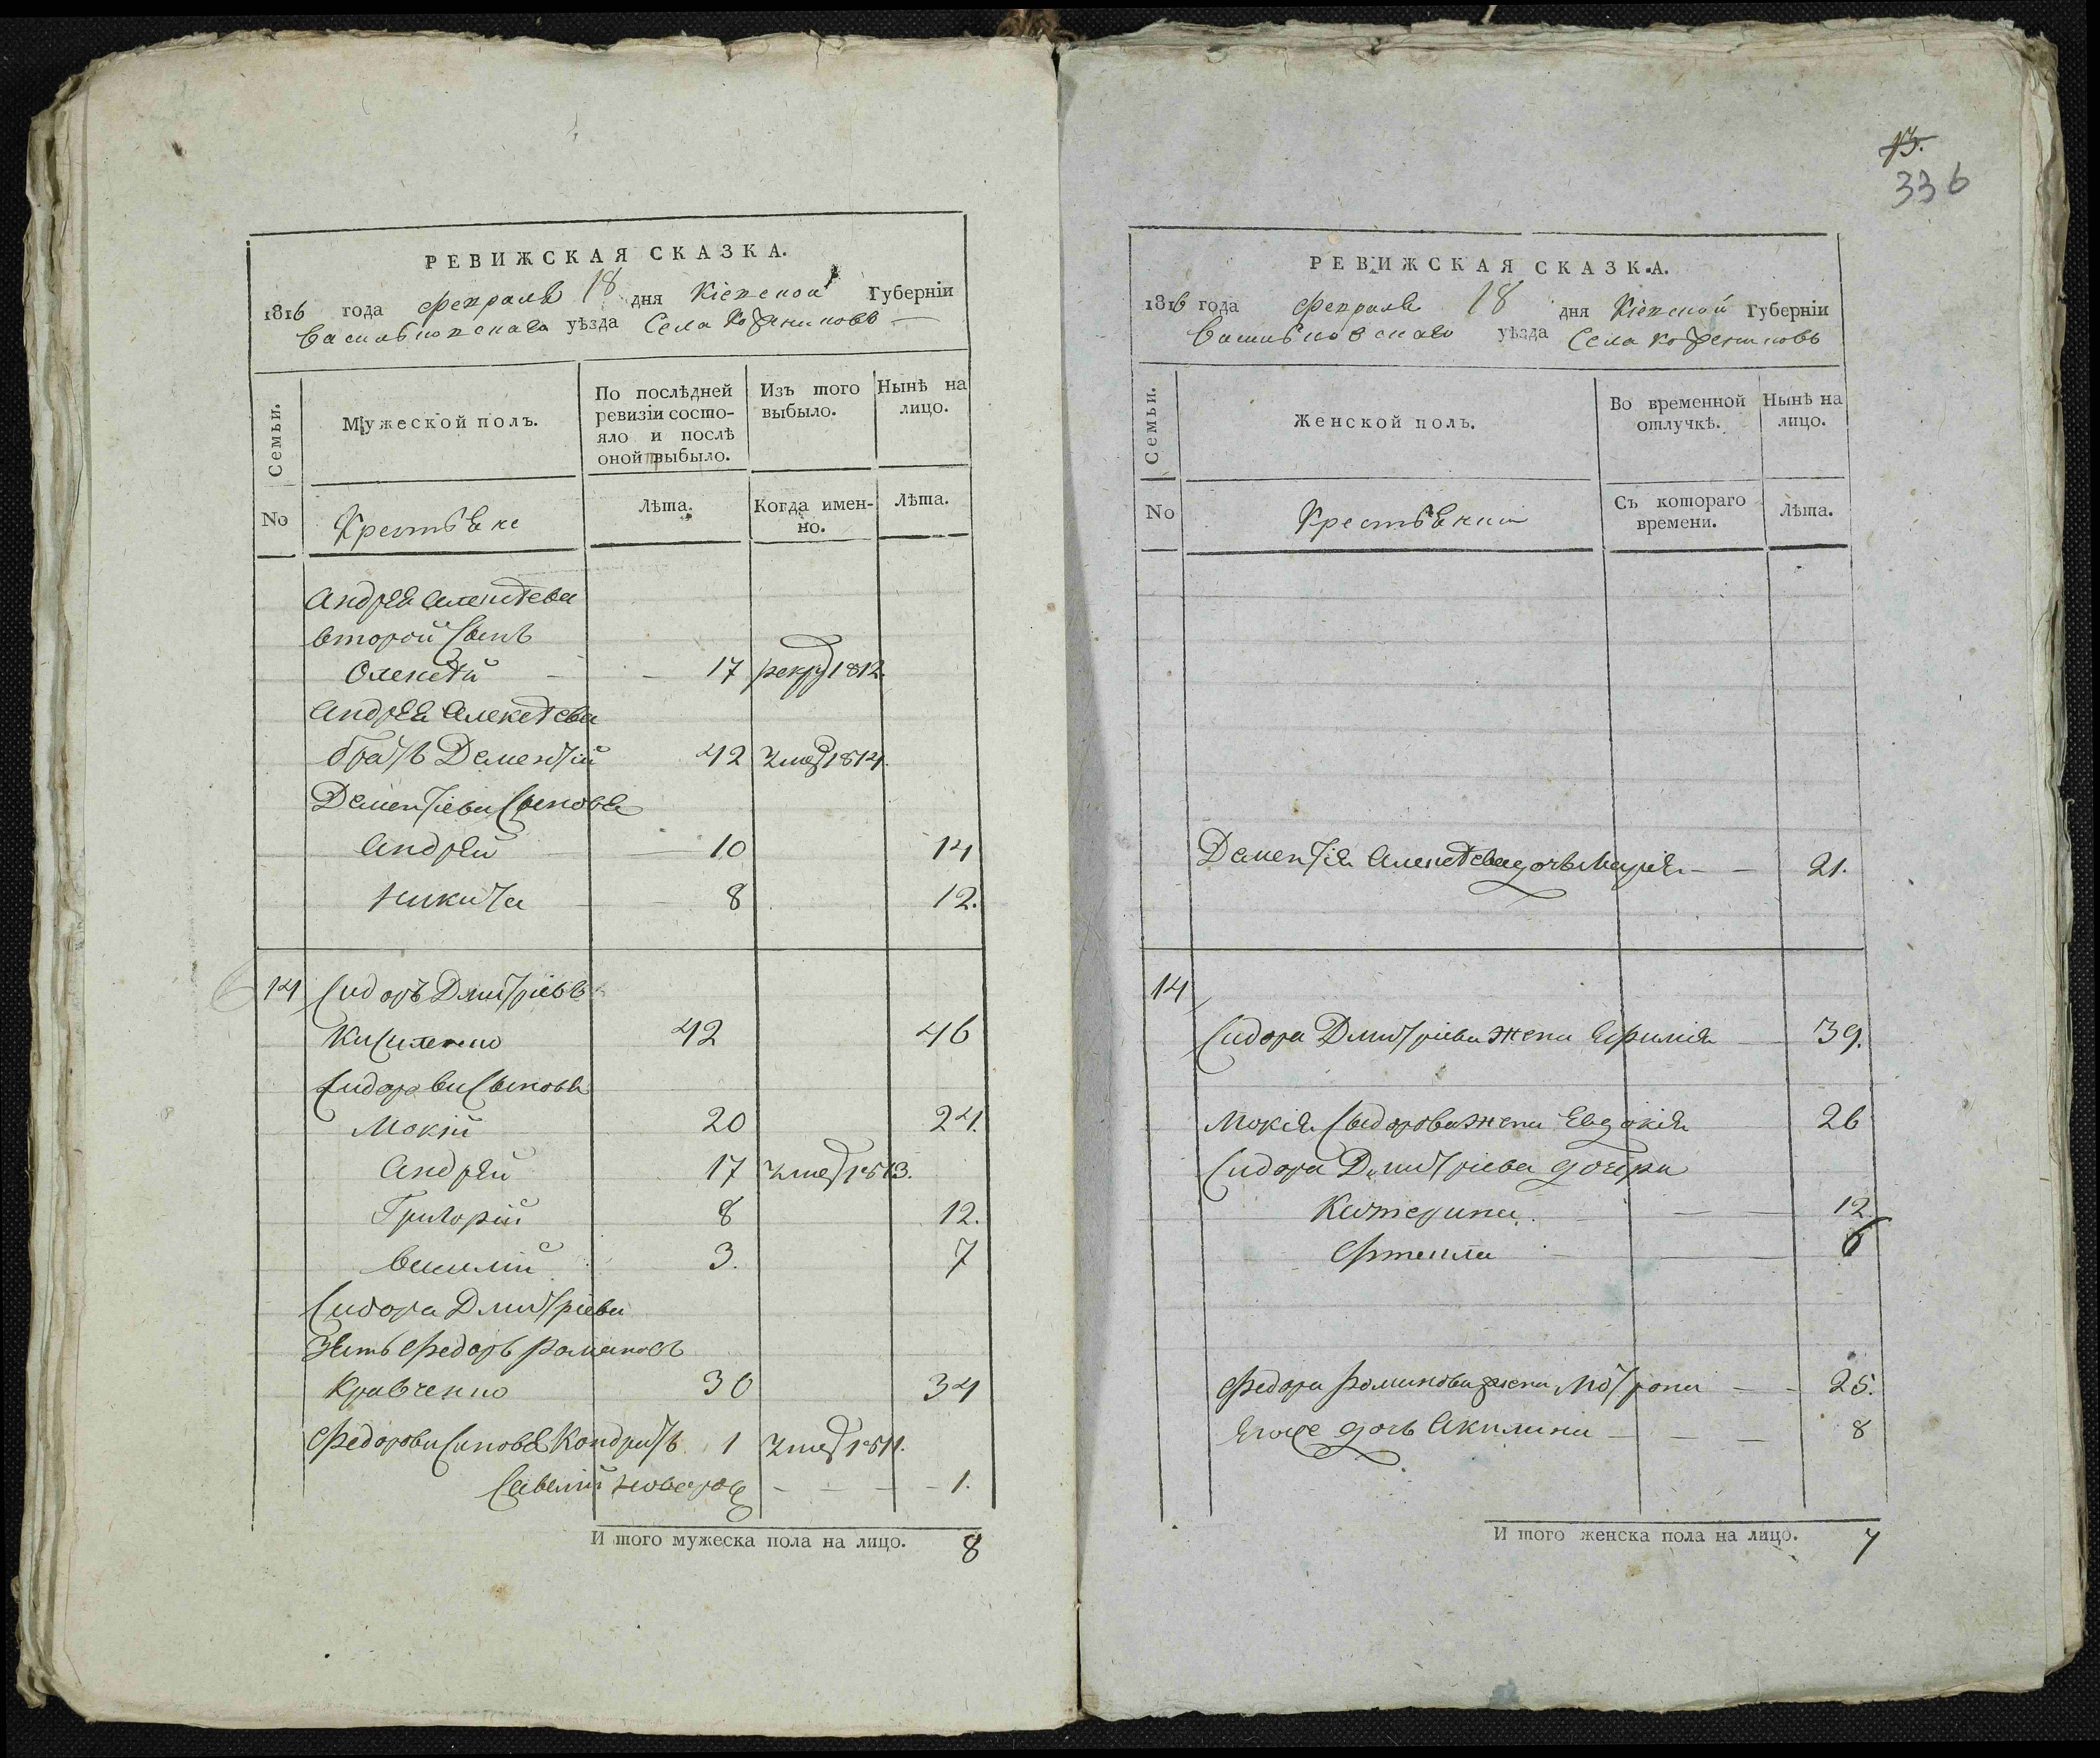 РЕВИЖСКАЯ СКАЗКА.
1816 года февраля 18 дня Кіевской Губерніи
Васильковскаго уѣзда Села
Семьи.
Мужеской полъ.
По послѣдней ревизіи состо-
яло и послѣ
оной выбыло.
Изъ того
выбыло.
Нынѣ на
лицо.
No
Крестьяне
Лѣта.
Когда имен-
но.
Лѣта.
Андрея Алексѣева
второй сынъ
Олексѣй - - 17 рекру 1812.
Андрея Алексѣева
братъ Дементій 42 умер 1814.
Дементіева сыновья
Андрѣй 10 14
Никита 8 12.
14 Сидоръ Дмитріевъ
Кисиленко 42 46
Сидорова сыновья
Мокій 20 24.
Андрѣй 17 умер 1813.
Григорій 8 12.
Василій 3. 7
Сидора Дмитріева
зять Федоръ Романовъ
Кравченко 30 34
Федорова синовья Кондратъ 1 умер 1811.
Савелій новорож - - - - 1.
И того мужеска пола на лицо. 8
13.
336
РЕВИЖСКАЯ СКАЗКА.
1816 года февраля 18 дня Кіевской Губерніи
Васильковскаго уѣзда Села
Семьи.
Женской полъ.
Во временной
отлучкѣ.
Нынѣ на
лицо.
No
Крестьянки
Съ котораго
времени.
Лѣта.
Дементія Алексѣева дочь Марія - - 21.
14
Сидора Дмитріева жена Ефимія 39.
Мокія Сыдорова жена Евдокія 26
Сидора Дмитріева дочери
Катерина. - - 12.
6
Федора Романова жена Мотрона - - 25.
Егоже дочь Акилина - - - 8
И того женска пола на лицо. 7